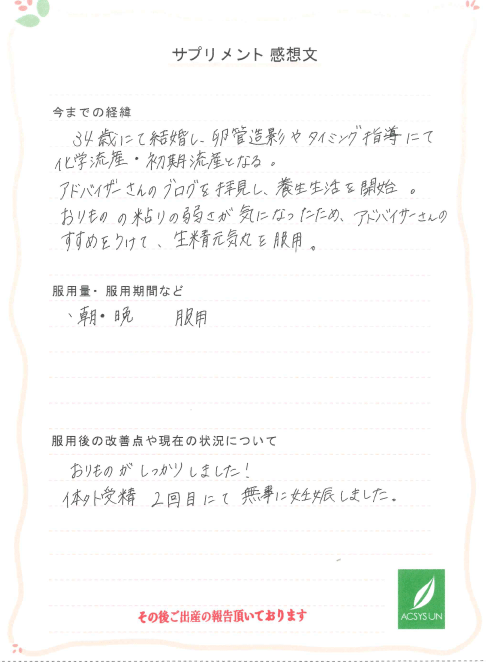 サプリメント 感想文
今までの経緯
34歳にて結婚し、卵管造影やタイミング指導にて
化学流産・初期流産となる。
アドバイザーさんのブログを拝見し、養生生活を開始。
おりものの粘りの弱さが気になったため、アドバイザーさんの
すすめをうけて、生精元気丸を服用。
服用量・服用期間など
朝・晩 服用
服用後の改善点や現在の状況について
おりものがしっかりしました!
体外受精 2回目にて無事に妊娠しました。
その後ご出産の報告頂いております
ACSYSUN